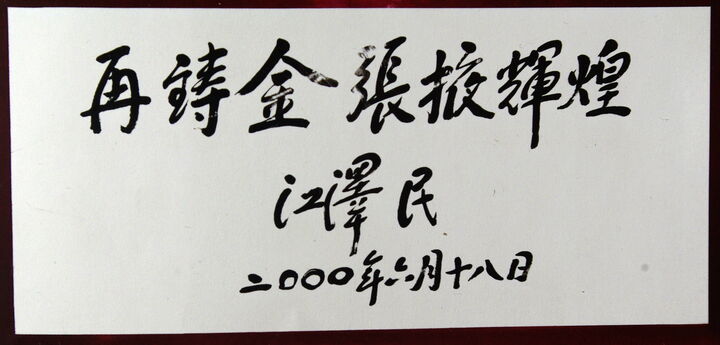 再鑄金張掖輝煌
江澤民
二〇〇〇年六月十八日